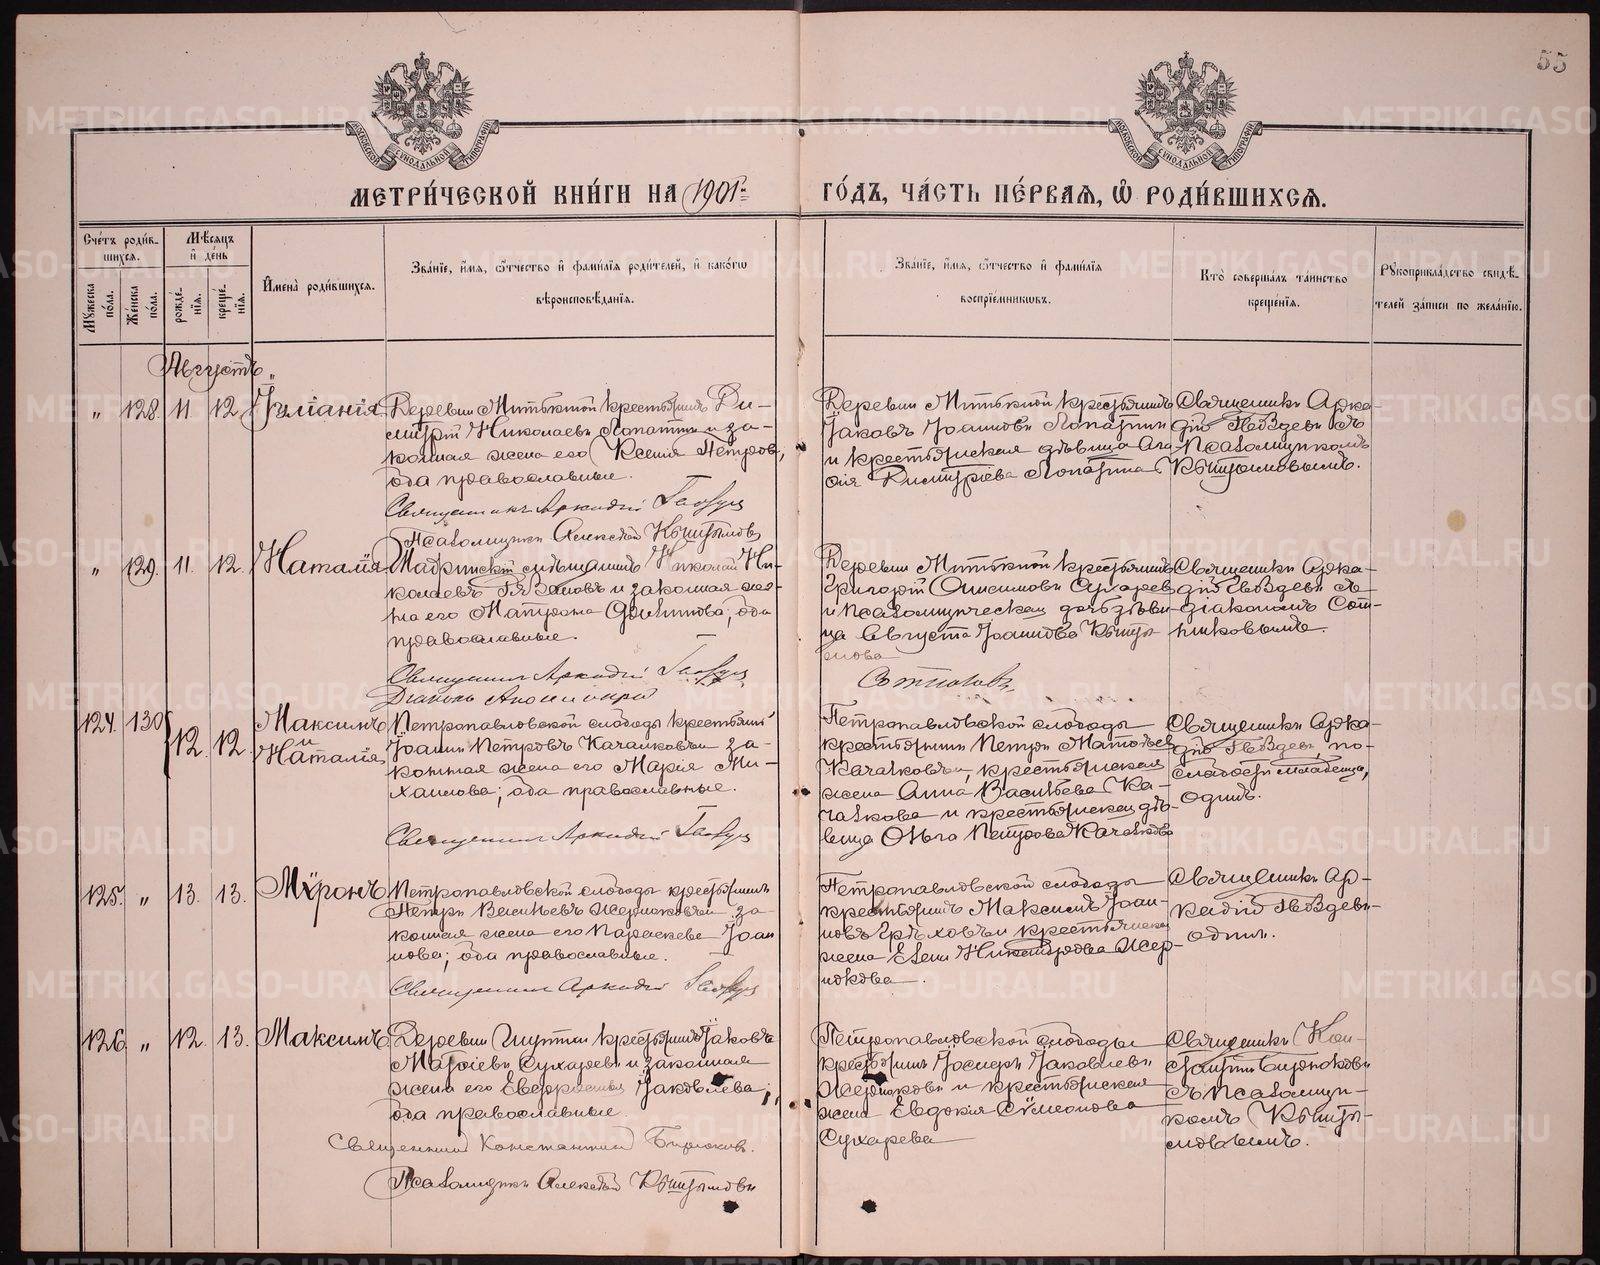 55
МЕТРИ́ЧЕСКОЙ КНИ́ГИ НА 1901й ГО́ДЪ, ЧА́СТЬ ПЕ́РВАЯ, Ѡ РОДИ́ВШИХСЯ.
Сче́тъ роди́в-
шихся.
Мꙋжеска по́ла.
Же́нска по́ла.
Мѣ́сяцъ
и҆ де́нь
рожде́-
нїя.
креще́-
нїя.
И҆мена̀ роди́вшихся.
Зва́нїе, и҆́мя, ѻ҆́тчество и҆ фами́лїя роди́телей, и҆ како́гѡ
вѣроисповѣ́данїя.
Зва́нїе, и҆́мя, ѻ҆́тчество и҆ фами́лїя
воспрїе́мниковъ.
Кто̀ соверша́лъ та́инство
креще́нїя.
Рꙋкоприкла́дство свидѣ́-
телей за́писи по жела́нїю.
Августъ.
„ 128. 11. 12. Іуліанія
Деревни Митькиной крестьянинъ Ди-
митрій Николаевъ Лопатинъ и за-
конная жена его Ксенія Петрова,
оба православные.
Священникъ Аркадій Гвоздевъ
Псаломщикъ Алексѣй Кыштымовъ
Деревни Митькиной крестьянинъ
Іаковъ Іоанновъ Лопатинъ
и крестьянская дѣвица Ага-
ѳія Димитріева Лопатина
Священникъ Арка-
дій Гвоздевъ съ
Псаломщикомъ
Кыштымовымъ.
„ 129. 11. 12. Наталія
Мадринскій мѣщанинъ Николай Ни-
колаевъ и законная же-
на его Матрона оба
православные.
Священникъ Аркадій Гвоздевъ
Діаконъ
Деревни Митькиной крестьянинъ
Григорій Онисимовъ Сухаревъ
и Псаломщическая дочь дѣви-
ца Августа Іоаннова Кышты-
мова
Сотниковъ
Священникъ Арка-
дій Гвоздевъ съ
діакономъ Сот-
никовымъ.
124. 130. 12. 12. Максимъ
и
Наталія
Петропавловской слободы крестьянинъ
Іоаннъ Петровъ Качалковъ и за-
конная жена его Марія Ми-
хаилова; оба православные.
Священникъ Аркадій Гвоздевъ
Петропавловской слободы
крестьянинъ Петръ Матвѣевъ
Качалковъ, крестьянская
жена Анна Васильева Ка-
чалкова и крестьянская дѣ-
вица Ольга Петрова Качалкова
Священникъ Арка-
дій Гвоздевъ по
слабости младенца,
одинъ.
125. „ 13. 13. Мѵронъ
Петропавловской слободы крестьянинъ
Петръ Васильевъ Жерноковъ и за-
конная жена его Параскева Іоан-
нова; оба православные.
Священникъ Аркадій Гвоздевъ
Петропавловской слободы
крестьянинъ Максимъ Іоан-
новъ Грѣховъ и крестьянская
жена Елена Жер-
нокова.
Священникъ Ар-
кадій Гвоздевъ
одинъ.
126. „ 12. 13. Максимъ
Деревни крестьянинъ Іаковъ
Сухаревъ и законная
жена его Евфросинія Іаковлева;
оба православные.
Священникъ Константинъ Бирюковъ.
Псаломщикъ Алексѣй Кыштымовъ
Петропавловской слободы
крестьянинъ Іосифъ Іаковлевъ
Жерноковъ и крестьянская
жена Евдокія Сѵмеонова
Сухарева
Священникъ Кон-
стантинъ Бирюковъ
съ Псаломщи-
комъ Кышты-
мовымъ.